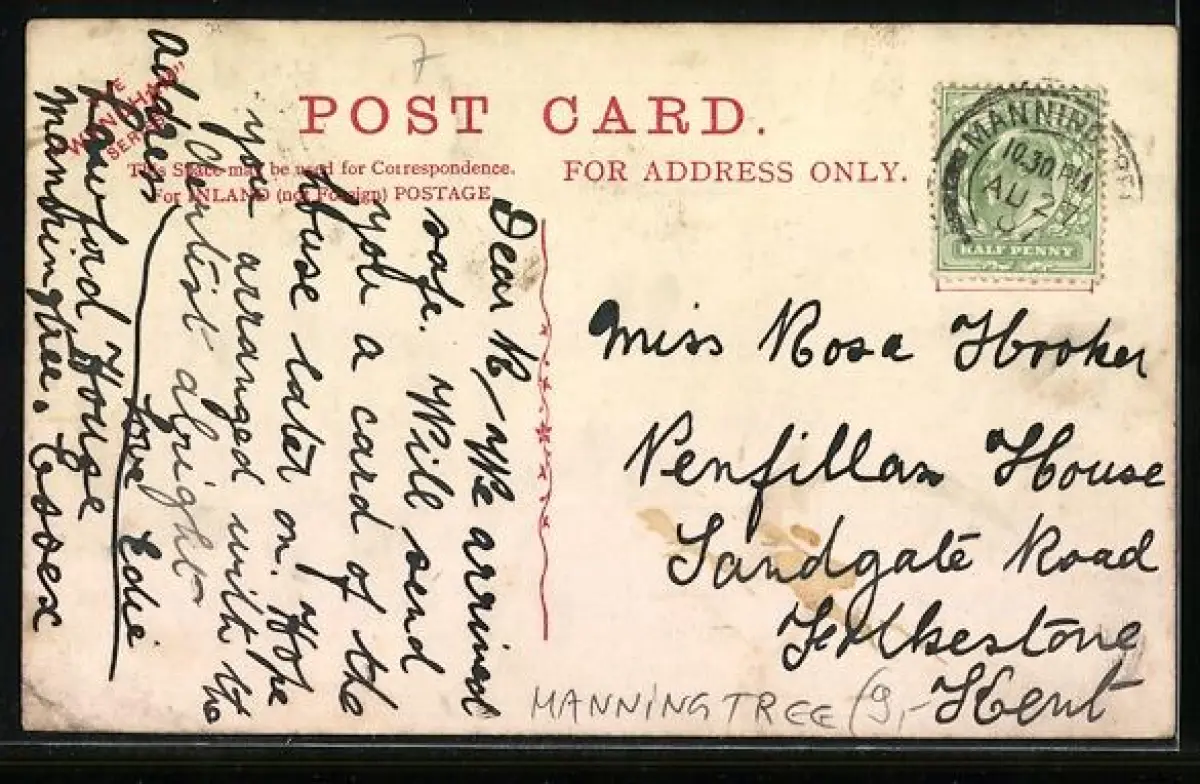 7
POST CARD.
THE
"WYNDHAM"
SERIES
This Space may be used for Correspondence.
For INLAND (not Foreign) POSTAGE.
FOR ADDRESS ONLY.
MANNINGTREE
10.30 PM
AU 27
07
HALF PENNY
Dear R, We arrived
safe. Will send
you a card of the
house later on. Hope
you arranged with the
dentist alright
love Edie
address
Lawford House
Manningtree. Essex
Miss Rosa Hooker
Penfillan House
Sandgate Road
Folkestone
Kent
MANNINGTREE (9,-